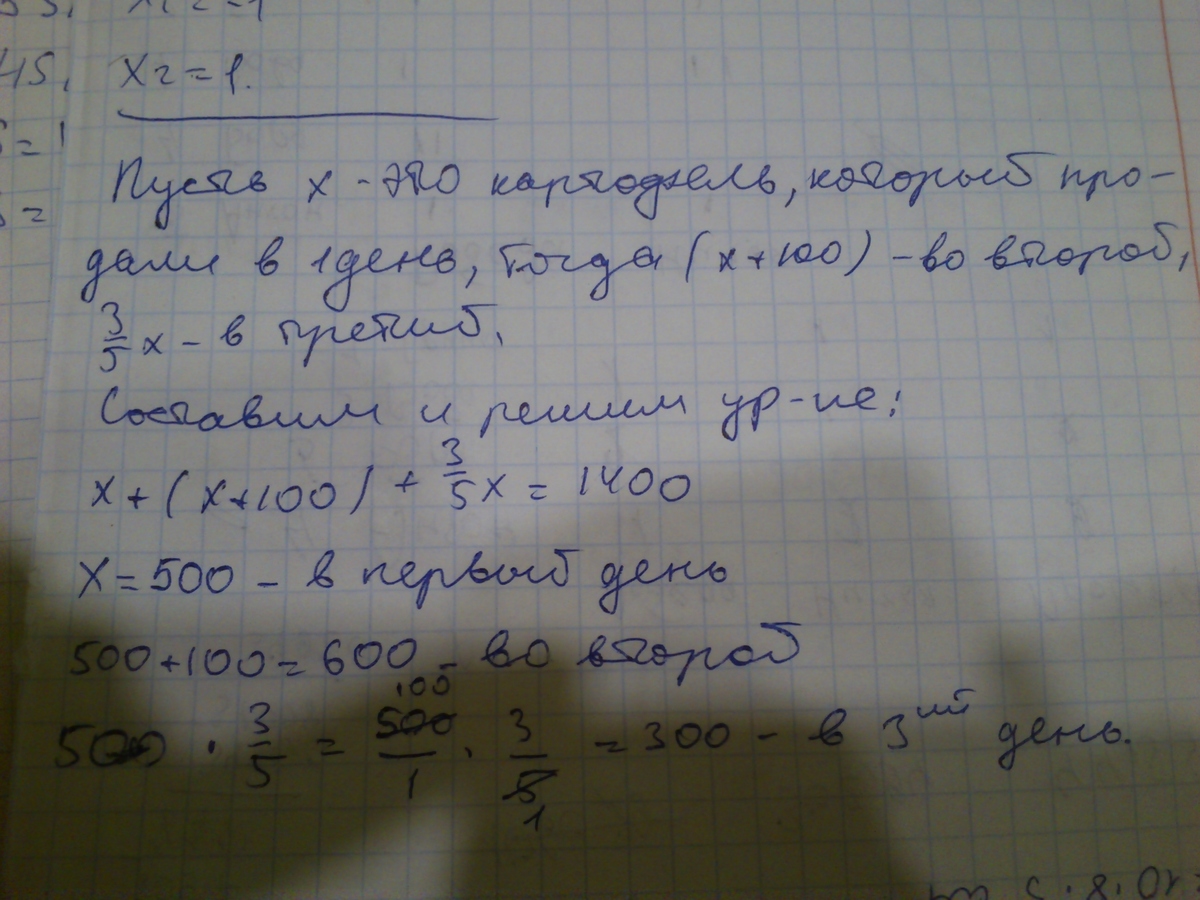 45, x₂ = 1.
Пусть x - это картофель, который про-
дали в 1 день, тогда (x+100) - во второй,
3/5 x - в третий.
Составим и решим ур-ие:
x + (x+100) + 3/5 x = 1400
x = 500 - в первый день
500+100 = 600 - во второй
500 · 3/5 = 500/1 · 3/5 = 300 - в 3ий день.
100
1